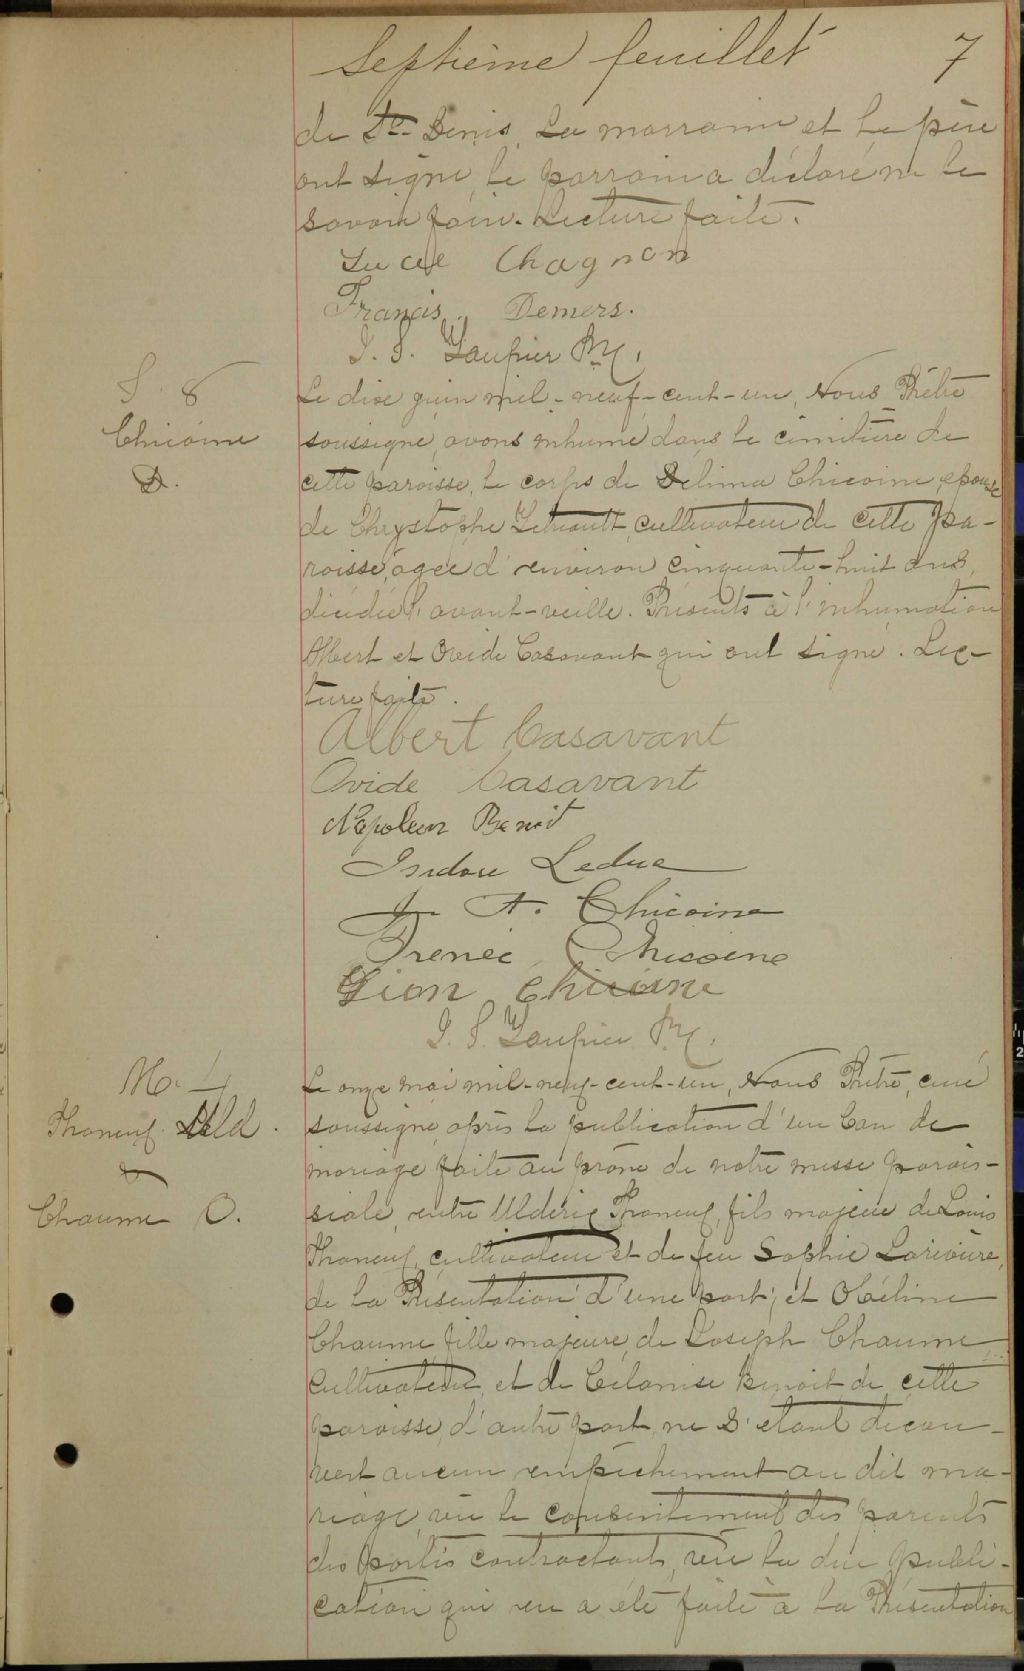 Septième feuillet 7
de St-Denis. La marraine et le père
ont signé, le parrain a déclaré ne le
savoir faire. Lecture faite.
Lucie Chagnon
Francis Demers.
J. S. Taupier Ptre.
S. 8
Chicoine
D.
Le dix juin mil-neuf-cent-un, Nous Prêtre
soussigné, avons inhumé dans le cimitière de
cette paroisse, le corps de Délima Chicoine, épouse
de Chrystophe Létourneau, cultivateur de cette pa-
roisse, agée d'environ cinquante-huit ans,
décédée l'avant-veille. Présents à l'inhumation
Albert et Ovide Casavant qui ont signé. Lec-
ture faite.
Albert Casavant
Ovide Casavant
Napoléon Benoit
Isidore Leduc
J. A. Chicoine
Irenée Chicoine
Lion Chicoine
J. S. Taupier Ptre.
M. 4
Phaneuf Uld.
&
Chaume O.
Le onze mai mil-neuf-cent-un, Nous Prêtre, curé
soussigné, après la publication d'un ban de
mariage faite au prône de notre messe parois-
siale, entre Ulderic Phaneuf, fils majeur de Louis
Phaneuf, cultivateur et de feu Sophie Larivière,
de La Présentation d'une part; et Obéline
Chaume, fille majeure, de Joseph Chaume
cultivateur, et de Célanise Benoit de cette
paroisse, d'autre part, ne s'étant décou-
vert aucun empêchement au dit ma-
riage, vu le consentement des parents
des parties contractants, vu la due publi-
cation qui en a été faite à La Présentation